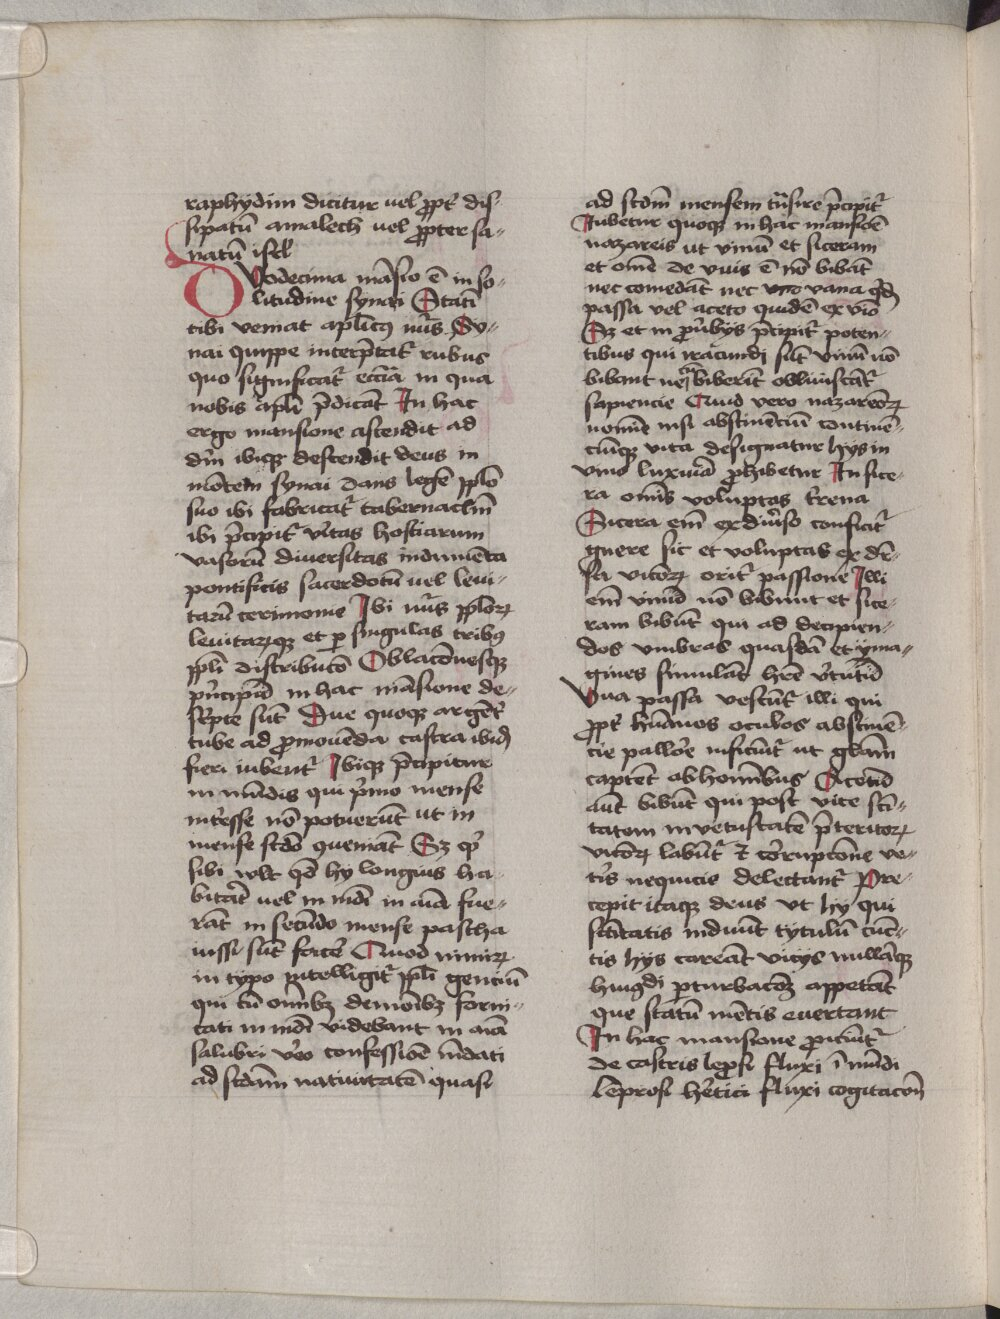 raphydim dicitur uel ꝓpt̄ dis-
sipatū amalech uel ꝓpter sa-
natū isr̄l
DVodecima māsio ē in so-
litudine synai Statī
tibi veniat apl̄icꝯ nr̄s Sy-
nai quippe interp̄tat᷑ rubus
quo significat᷑ ecc̄ia in qua
nobis apl̄i p̄dicāt In hac
ergo mansione ascendit ad
dn̄m ibiqꝫ descendit deus in
mōtem synai dans legē ppl̄o
suo ibi fabricat᷑ tabernacl̄m
ibi p̄cipit᷑ v̄itas hostiarum
vasorū diuersitas indumēta
pontificis sacerdotū uel leui-
tarū cerimonie Ibi nr̄s ppl̄oꝝ
leuitaꝝqꝫ et ꝑ singulas tribꝯ
ppl̄i distributō Oblacōnesqꝫ
pͥncipū in hac māsione de-
sc̄pte sūt Due quoqꝫ argēt̄
tube ad ꝓmouēda castra ibid̄
fieri iubent᷑ Ibiqꝫ p̄cipitur
in mūdis qui pͥmo mense
int̄esse nō potuerūt ut in
mense sc̄do queniāt Sꝫ qͥ
sibi vult qd̄ hy longius ha-
bitāt uel in mūdi in aīa fue-
rāt in secūdo mense pascha
iussi sūt facē Quod nimiꝝ
in typo intelligit᷑ ppl̄i genciū
qui cū om̄ibꝫ demōibꝫ forni-
cati in mūdi videbant in aīa
salubri v̄o confessiōe mūdati
ad sc̄dam natiuitatē quasi
ad sc̄dm mensem tn̄sire p̄cipit᷑
Iubetur quoqꝫ in hac mansiōe
nazareis ut vinū et siceram
et om̄e de vuis ē nō bibāt
nec comedāt nec vuā vana qd̄
passa vel aceto quidē ex vīo
Sꝫ et in ꝓūbijs p̄cipit᷑ poten-
tibus qui iracundi sūt vinū nō
bibant ne biberīt obliuiscāt᷑
sapiencie Quid vero nazareoꝝ
nomīe nisi abstinēciū contīnē-
ciūqꝫ vita designatur hijs in
vino luxuria ꝓhibetur In sice-
ra om̄is voluptas t̄rena
Sicera em̄ ex diuͥso conficit᷑
genere sic et voluptas ex dī-
sa vicioꝝ orit᷑ passione Illi
em̄ vinū nō bibunt et sice-
ram bibūt qui ad decipien-
dos vmbras quasdā et yma-
gines simulāt hr̄e v̄tutū
Vua passa vescūt᷑ illi qui
ꝓpt̄ hūanos oculos abstinē-
cie pallōe inficiūt᷑ ut gl̄am
captēt ab hominibus Acetū
aūt bibūt qui post vite sc̄i-
tatem in vetustatē p̄teritoꝝ
vicioꝝ labūt᷑ ⁊ corrupcōne ve-
tis nequicie delectant᷑ Pre-
cepit itaqꝫ deus ut hy qui
sc̄itatis induūt tytulū cūc-
tis hijs careāt vicijs nullāqꝫ
huiꝯdi ꝑturbacōeꝫ appetāt
que statū mētis euertant
In hac mansione ꝓiciūt᷑
de castris lep̄si fluxi ī mūdi
Leprosi h̄etici fluxi cogitacōn̄